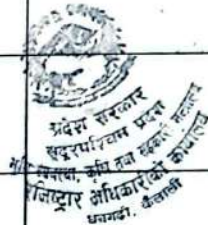 प्रदेश सरकार
सुदूरपश्चिम प्रदेश
कृषि तथा सहकारी मन्त्रालय
रजिष्ट्रार अधिकारीको कार्यालय
धनगढी, कैलाली